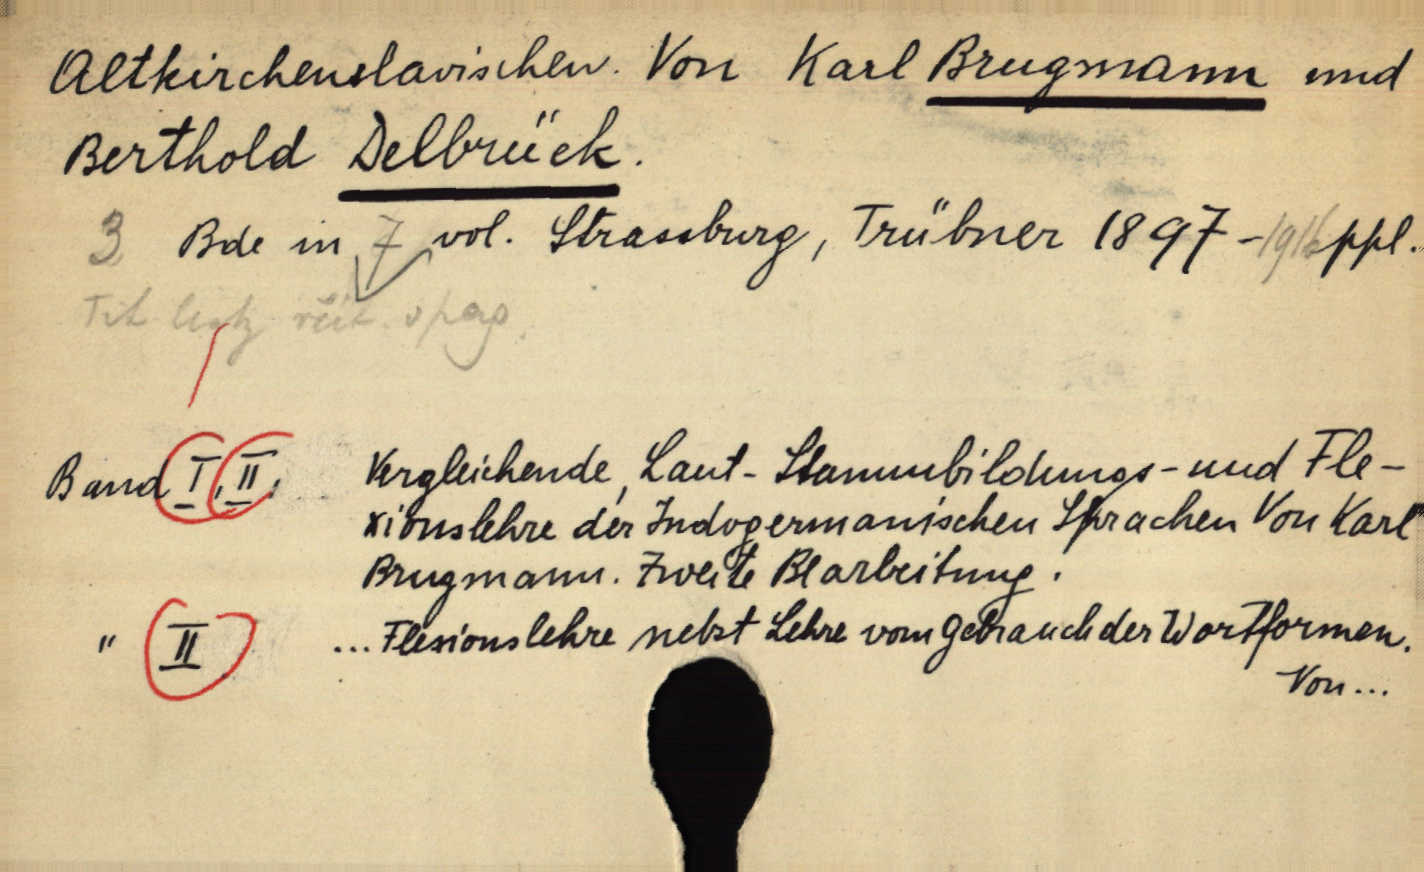 Altkirchenslavischen. Von Karl Brugmann und
Berthold Delbrück.
3 Bde in 7 vol. Strassburg, Trübner 1897-1916 ppl.
Tit
Band I, II, Vergleichende, Laut- Stammbildungs- und Fle-
xionslehre der Indogermanischen Sprachen Von Karl
Brugmann. Zweite Bearbeitung.
" II ... Flexionslehre nebst Lehre vom Gebrauch der Wortformen.
Von ...